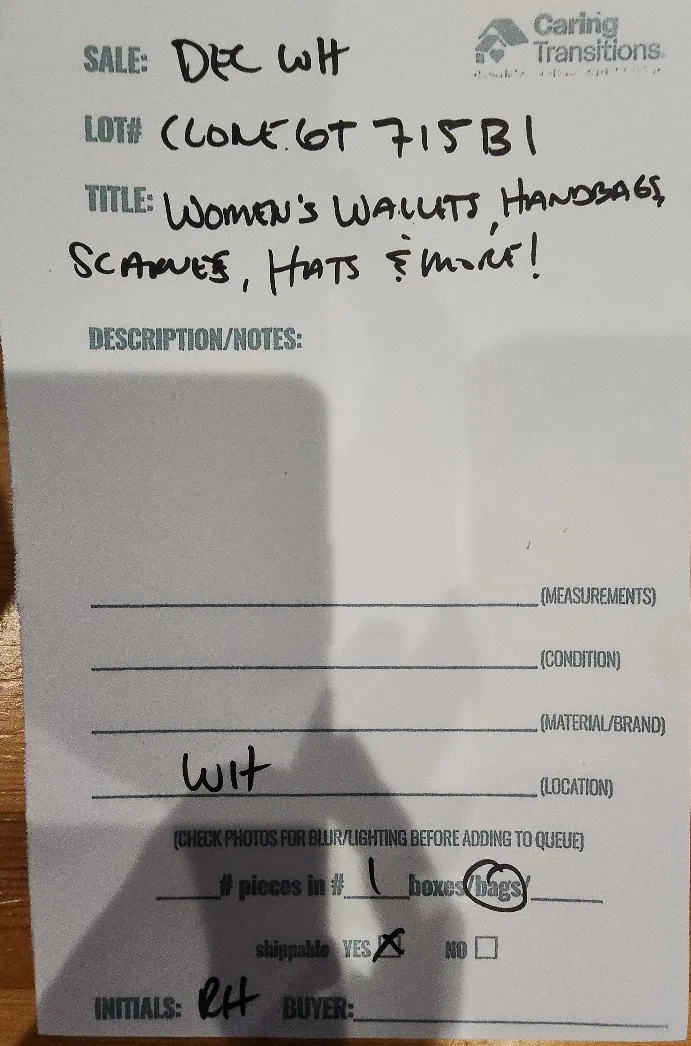 Caring
Transitions.
SALE: DEC WH
LOT# CLONE.GT 715B1
TITLE: WOMEN'S WALLETS, HANDBAGS,
SCARVES, HATS & MORE!
DESCRIPTION/NOTES:
(MEASUREMENTS)
(CONDITION)
(MATERIAL/BRAND)
WH (LOCATION)
(CHECK PHOTOS FOR BLUR/LIGHTING BEFORE ADDING TO QUEUE)
# pieces in # 1 boxes/bags/
shippable YES X NO
INITIALS: RH BUYER: